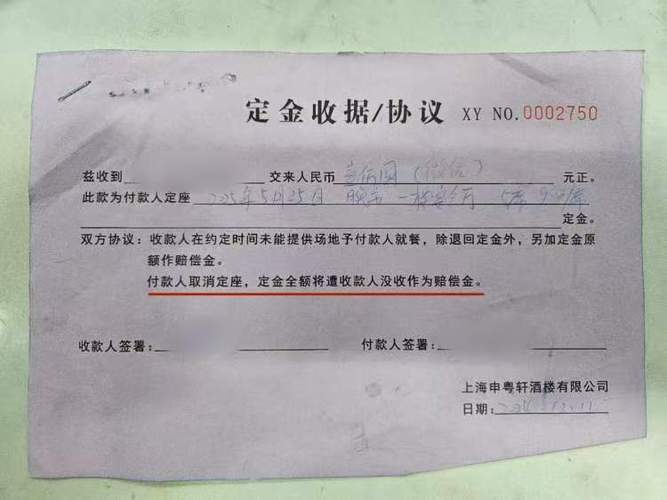 定金收据/协议 XY NO.0002750
兹收到 交来人民币 (微信) 元正。
此款为付款人定座 2025年5月25日 晚市 一楼宴会厅 5席
定金。
双方协议：收款人在约定时间未能提供场地予付款人就餐，除退回定金外，另加定金原
额作赔偿金。
付款人取消定座，定金全额将遭收款人没收作为赔偿金。
收款人签署： 付款人签署：
上海申粤轩酒楼有限公司
日期：